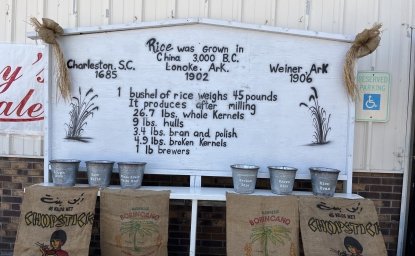 Rice was grown in
China 3,000 B.C.
Charleston, S.C.
1685
Lonoke, Ark.
1902
Weiner, Ark
1906
1 bushel of rice weighs 45 pounds
It produces after milling
26.7 lbs. whole Kernels
9 lbs. hulls
3.4 lbs. bran and polish
4.9 lbs. broken Kernels
1 lb brewers
y's
ale
RESERVED
PARKING
CHOPSTICK
BORINCANO
BORINCANO
CHOPSTICK